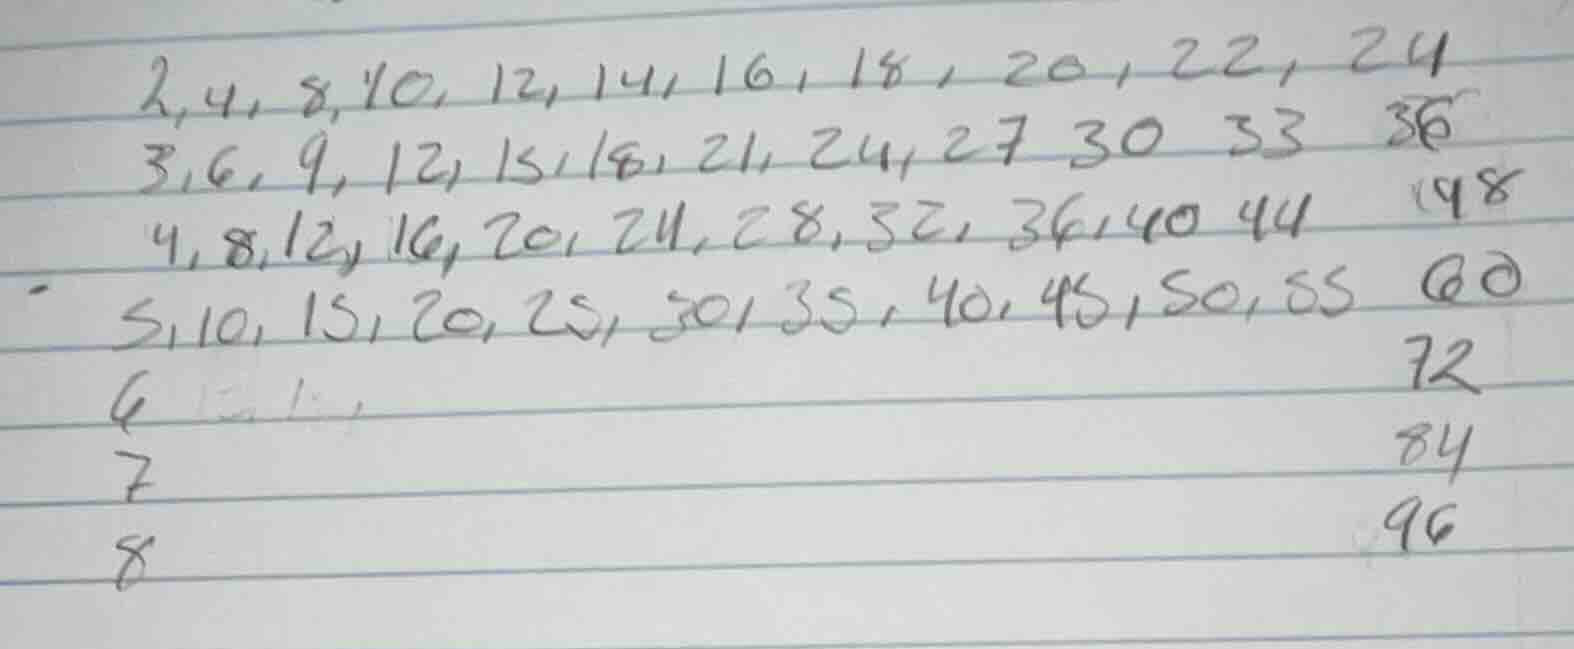 2, 4, 8, 10, 12, 14, 16, 18, 20, 22, 24
3, 6, 9, 12, 15, 18, 21, 24, 27 30 33 36
4, 8, 12, 16, 20, 24, 28, 32, 36, 40 44 48
5, 10, 15, 20, 25, 30, 35, 40, 45, 50, 55 60
6 72
7 84
8 96